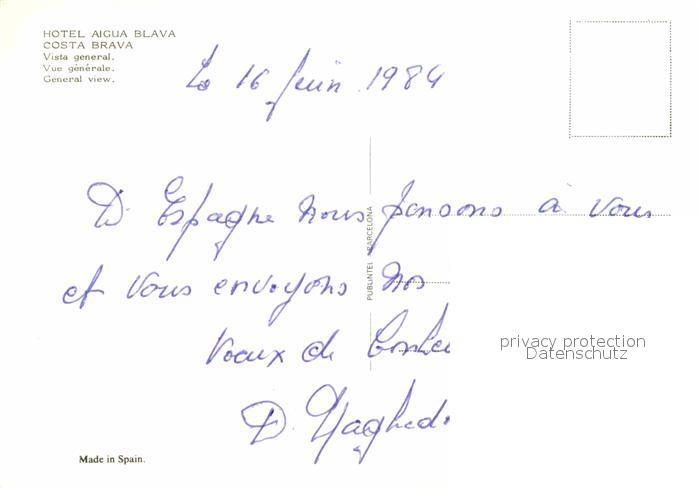 HOTEL AIGUA BLAVA
COSTA BRAVA
Vista general.
Vue générale.
General view.
Le 16 Juin 1984
D'Espagne nous pensons à vous
et vous envoyons nos
Voeux de
D.
PUBLINTEL BARCELONA
privacy protection
Datenschutz
Made in Spain.